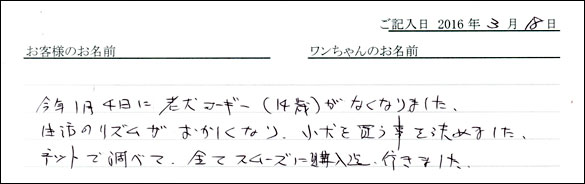 ご記入日 2016 年 3 月 18 日
お客様のお名前 ワンちゃんのお名前
今年1月4日に 老犬コーギー (14歳)がなくなりました、
生活のリズムが おかしくなり、小犬を買う事を決めました、
ネットで調べて、全て スムーズに購入迄、行きました、